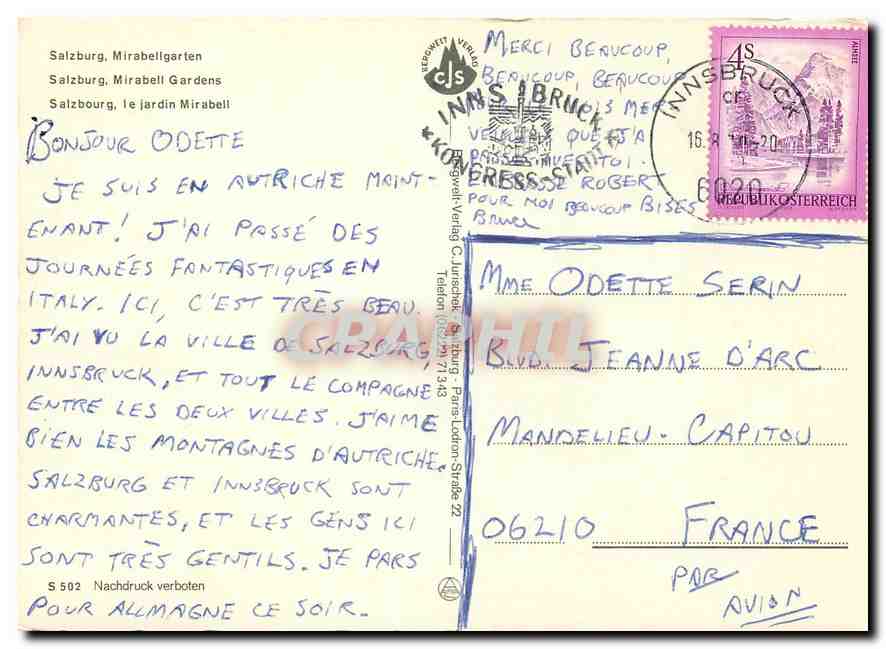 Salzburg, Mirabellgarten
Salzburg, Mirabell Gardens
Salzbourg, le jardin Mirabell
BONJOUR ODETTE
JE SUIS EN AUTRICHE MAINT-
ENANT! J'AI PASSÉ DES
JOURNÉES FANTASTIQUES EN
ITALY. ICI, C'EST TRÈS BEAU.
J'AI VU LA VILLE DE SALZBURG,
INNSBRUCK, ET TOUT LE COMPAGNE
ENTRE LES DEUX VILLES. J'AIME
BIEN LES MONTAGNES D'AUTRICHE.
SALZBURG ET INNSBRUCK SONT
CHARMANTES, ET LES GENS ICI
SONT TRÈS GENTILS. JE PARS
S 502 Nachdruck verboten
POUR ALLMAGNE CE SOIR.
BERGWELT VERLAG
CJS
Bergwelt-Verlag C. Jurischek - Salzburg - Paris-Lodron-Straße 22
Telefon (06222) 71343
MERCI BEAUCOUP,
BEAUCOUP, BEAUCOUP
MER
VE QUE J'AI
PASSÉ AVEC TOI.
EMBRASSE ROBERT
POUR MOI BEAUCOUP BISES
Bruce
INNSBRUCK
KONGRESS-STADT
INNSBRUCK
6020
4S
ALMSEE
REPUBLIK ÖSTERREICH
MME ODETTE SERIN
BLVD. JEANNE D'ARC
MANDELIEU-CAPITOU
06210 FRANCE
PAR
AVION
CPAPHIL